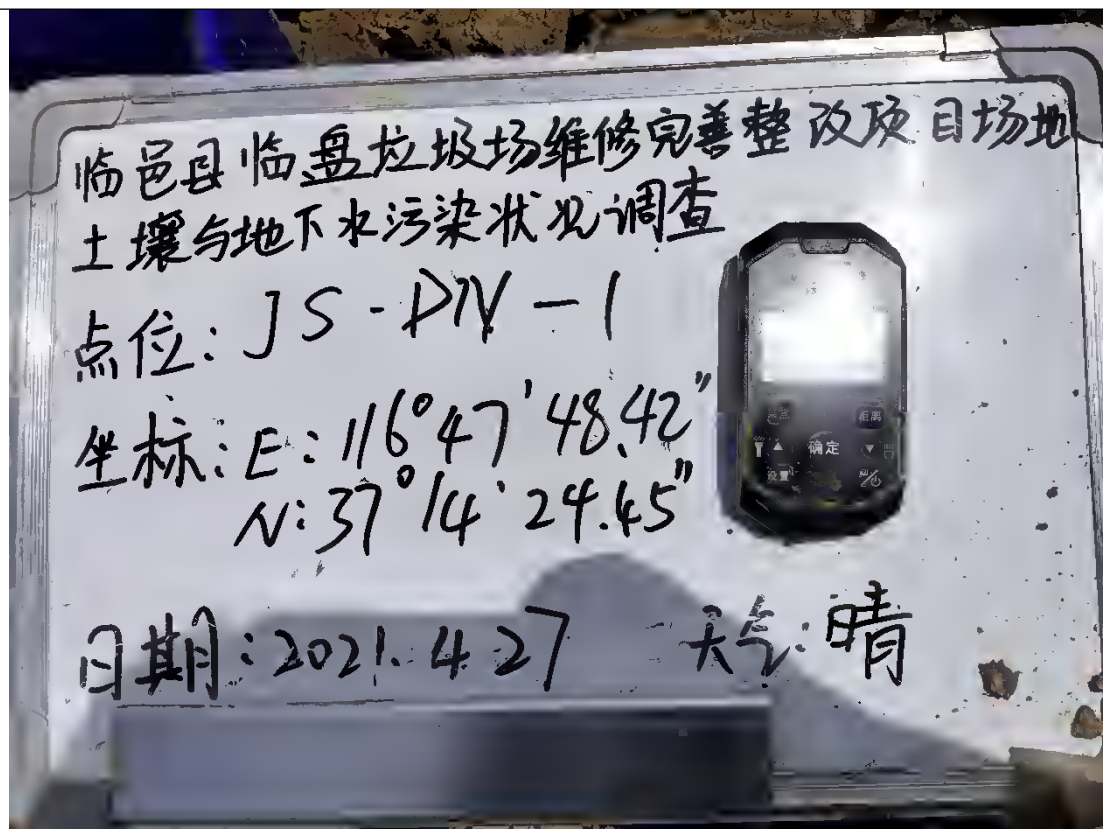 临邑县临盘垃圾场维修完善整改项目场地
土壤与地下水污染状况调查
点位: JS-DW-1
坐标: E: 116°47'48.42"
N: 37°14'24.45"
距离
确定
设置
日期: 2021.4.27 天气: 晴